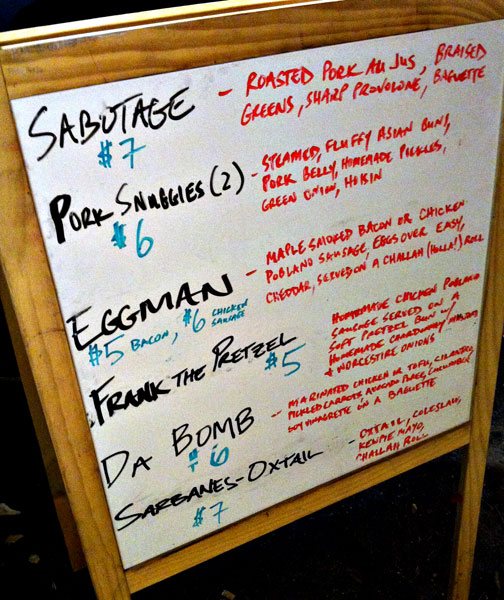 SABOTAGE - ROASTED PORK AU JUS, BRAISED
$7 GREENS, SHARP PROVOLONE, BAGUETTE
PORK SNUGGIES (2) - STEAMED, FLUFFY ASIAN BUNS,
$6 PORK BELLY, HOMEMADE PICKLES,
GREEN ONION, HOISIN
EGGMAN - MAPLE SMOKED BACON OR CHICKEN
POBLANO SAUSAGE, EGGS OVER EASY,
CHEDDAR, SERVED ON A CHALLAH (HOLLA!) ROLL
$5 BACON, $6 CHICKEN SAUSAGE
FRANK THE PRETZEL HOMEMADE CHICKEN POBLANO
$5 SAUSAGE SERVED ON A
SOFT PRETZEL BUN W/
HOMEMADE CHARDONNAY MUSTARD
& WORCESTIRE ONIONS
DA BOMB - MARINATED CHICKEN OR TOFU, CILANTRO,
$6 PICKLED CARROTS, AVOCADO PUREE,
SOY VINAIGRETTE ON A BAGUETTE
SARBANES-OXTAIL - OXTAIL, COLESLAW,
$7 KEWPIE MAYO,
CHALLAH ROLL